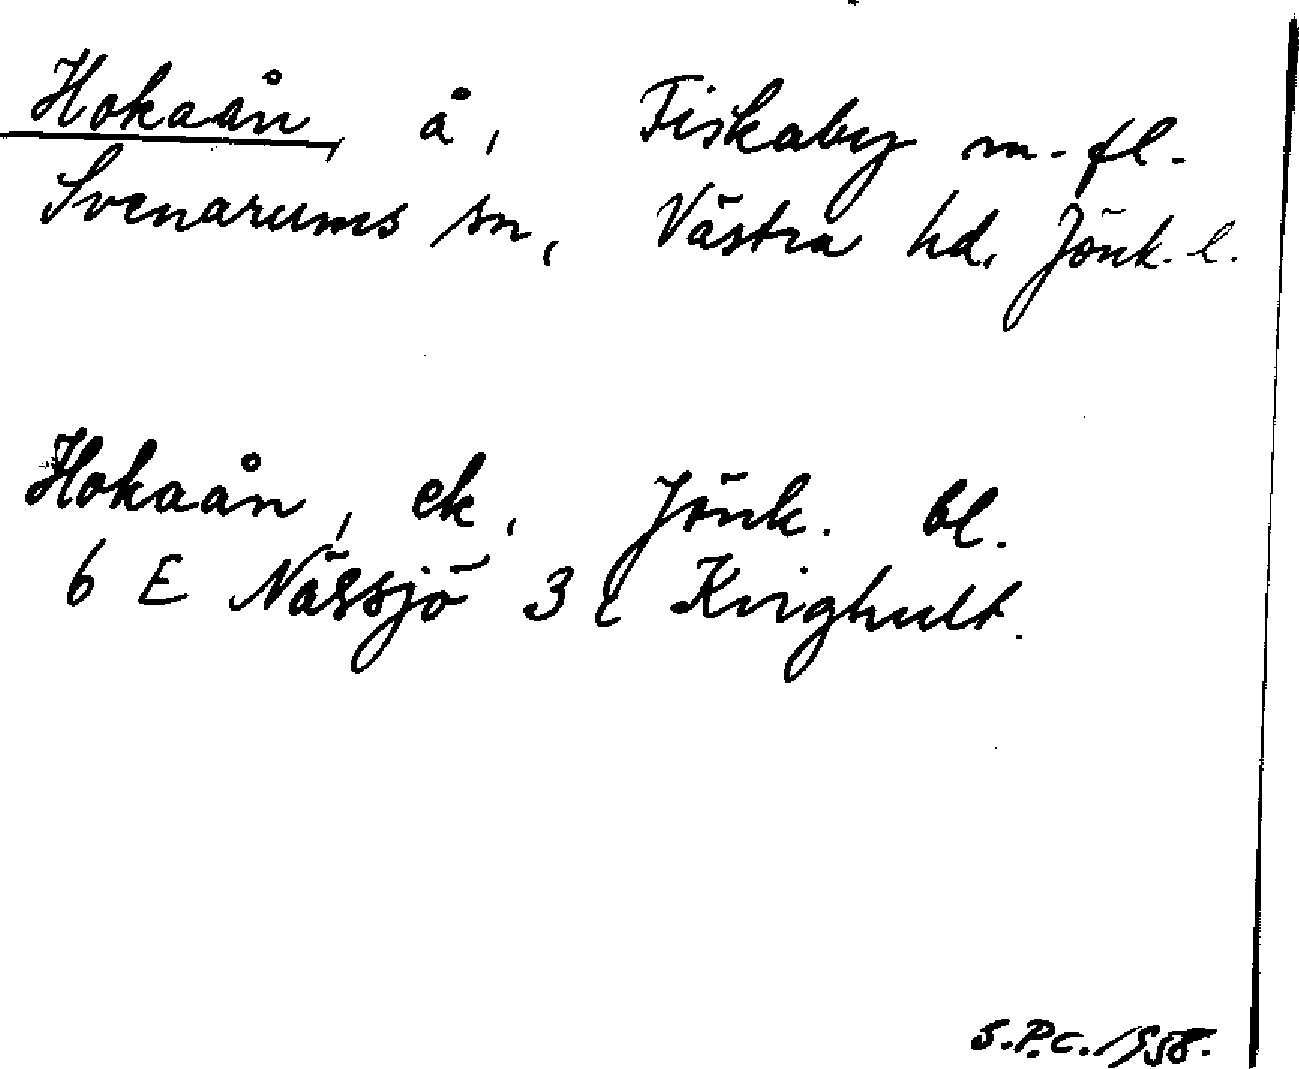 Hokaån, å, Fiskaby m.fl.
Svenarums sn, Västra hd. Jönk. l.
Hokaån, ek, Jönk. bl.
6 E Nässjö 3 c Kvighult.
S.P.C. 1958.